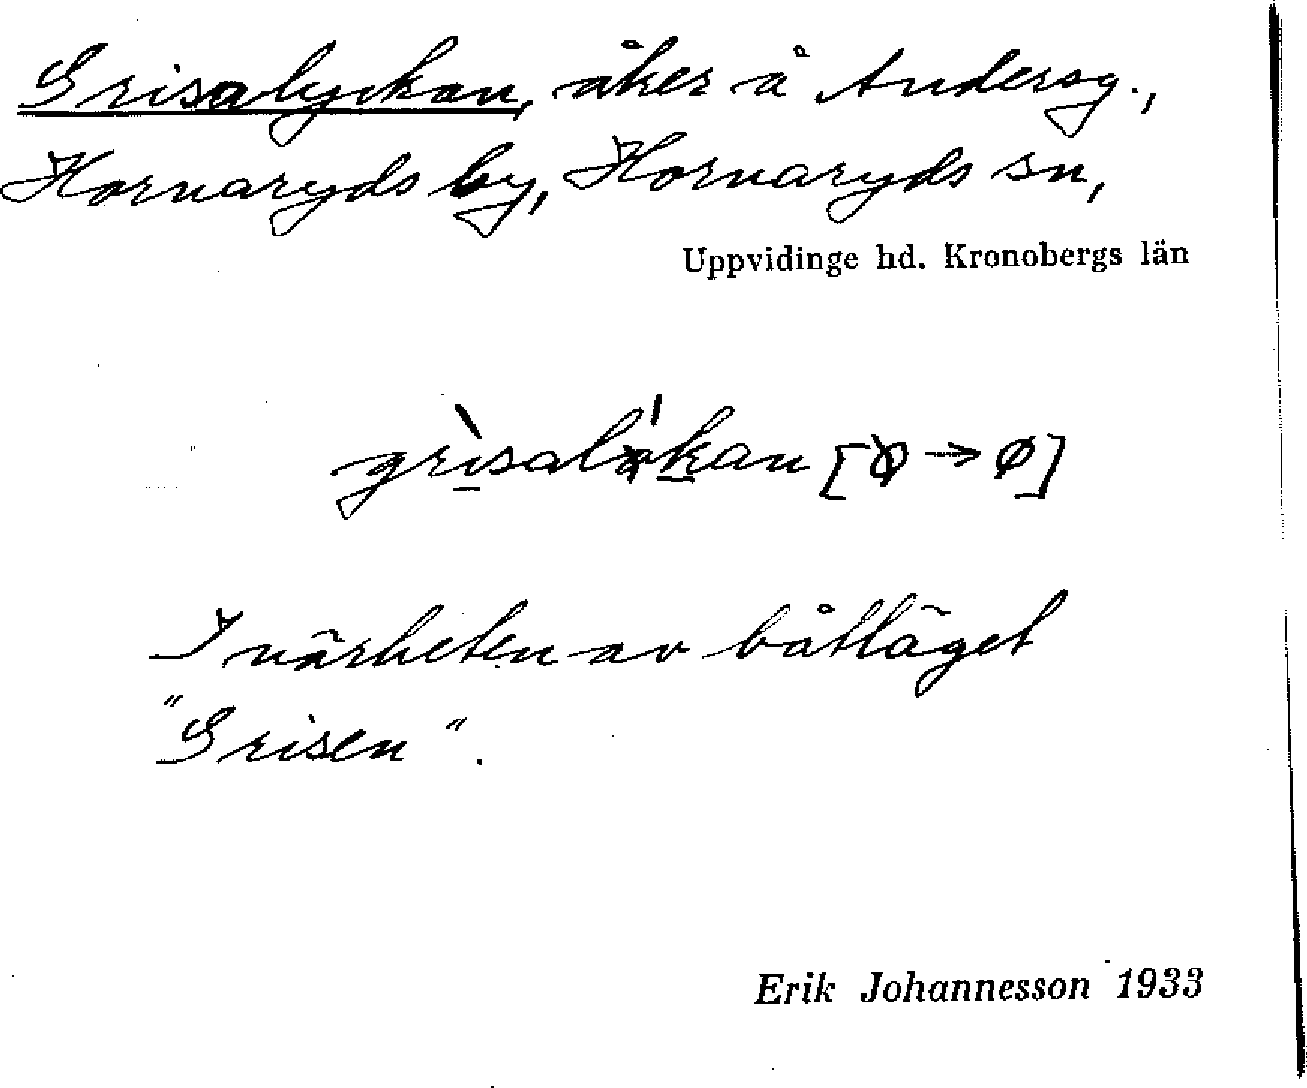 Grisalyckan, åker å Andersg.,
Hornaryds by, Hornaryds sn,
Uppvidinge hd. Kronobergs län
[ → ø]
I närheten av båtläget
"Grisen".
Erik Johannesson 1933